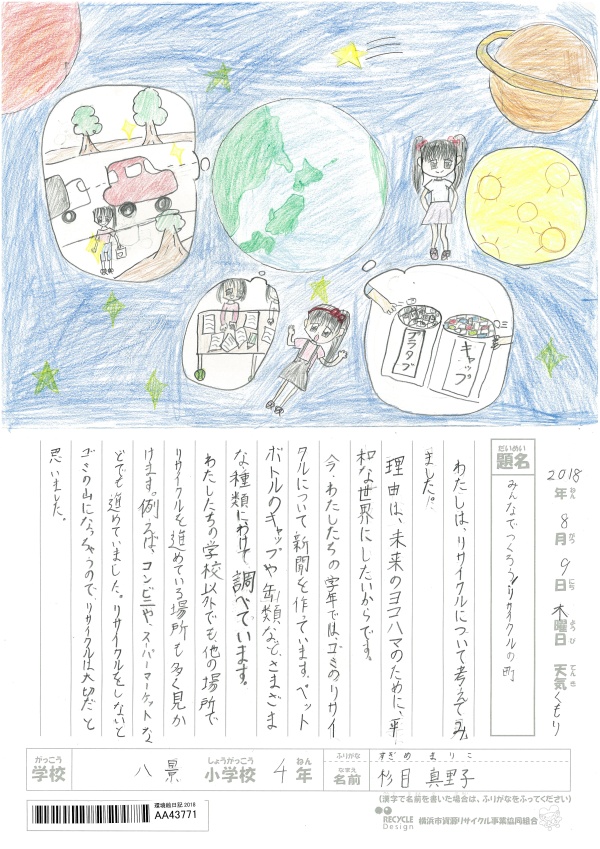 プラタブ
キャップ
2018年 8月 9日 木曜日 天気 くもり
ねん がつ にち ようび てんき
だいめい
題名
みんなでつくろうリサイクルの町
わたしは、リサイクルについて考えてみ
ました。
理由は、未来のヨコハマのために、平
和な世界にしたいからです。
今、わたしたちの学年では、ゴミのリサイ
クルについて新聞を作っています。ペット
ボトルのキャップや缶類など、さまざま
な種類にわけて調べています。
わたしたちの学校以外でも他の場所で
リサイクルを進めている場所も多く見か
けます。例えば、コンビニや、スーパーマーケットな
どでも進めていました。リサイクルをしないと
ゴミの山になっちゃうので、リサイクルは大切だと
思いました。
がっこう しょうがっこう ねん
学校 八景 小学校 4年
ふりがな すぎめ まりこ
なまえ
名前 杉目 真里子
(漢字で名前を書いた場合は、ふりがなをふってください)
環境絵日記 2018
AA43771
RECYCLE Design 横浜市資源リサイクル事業協同組合